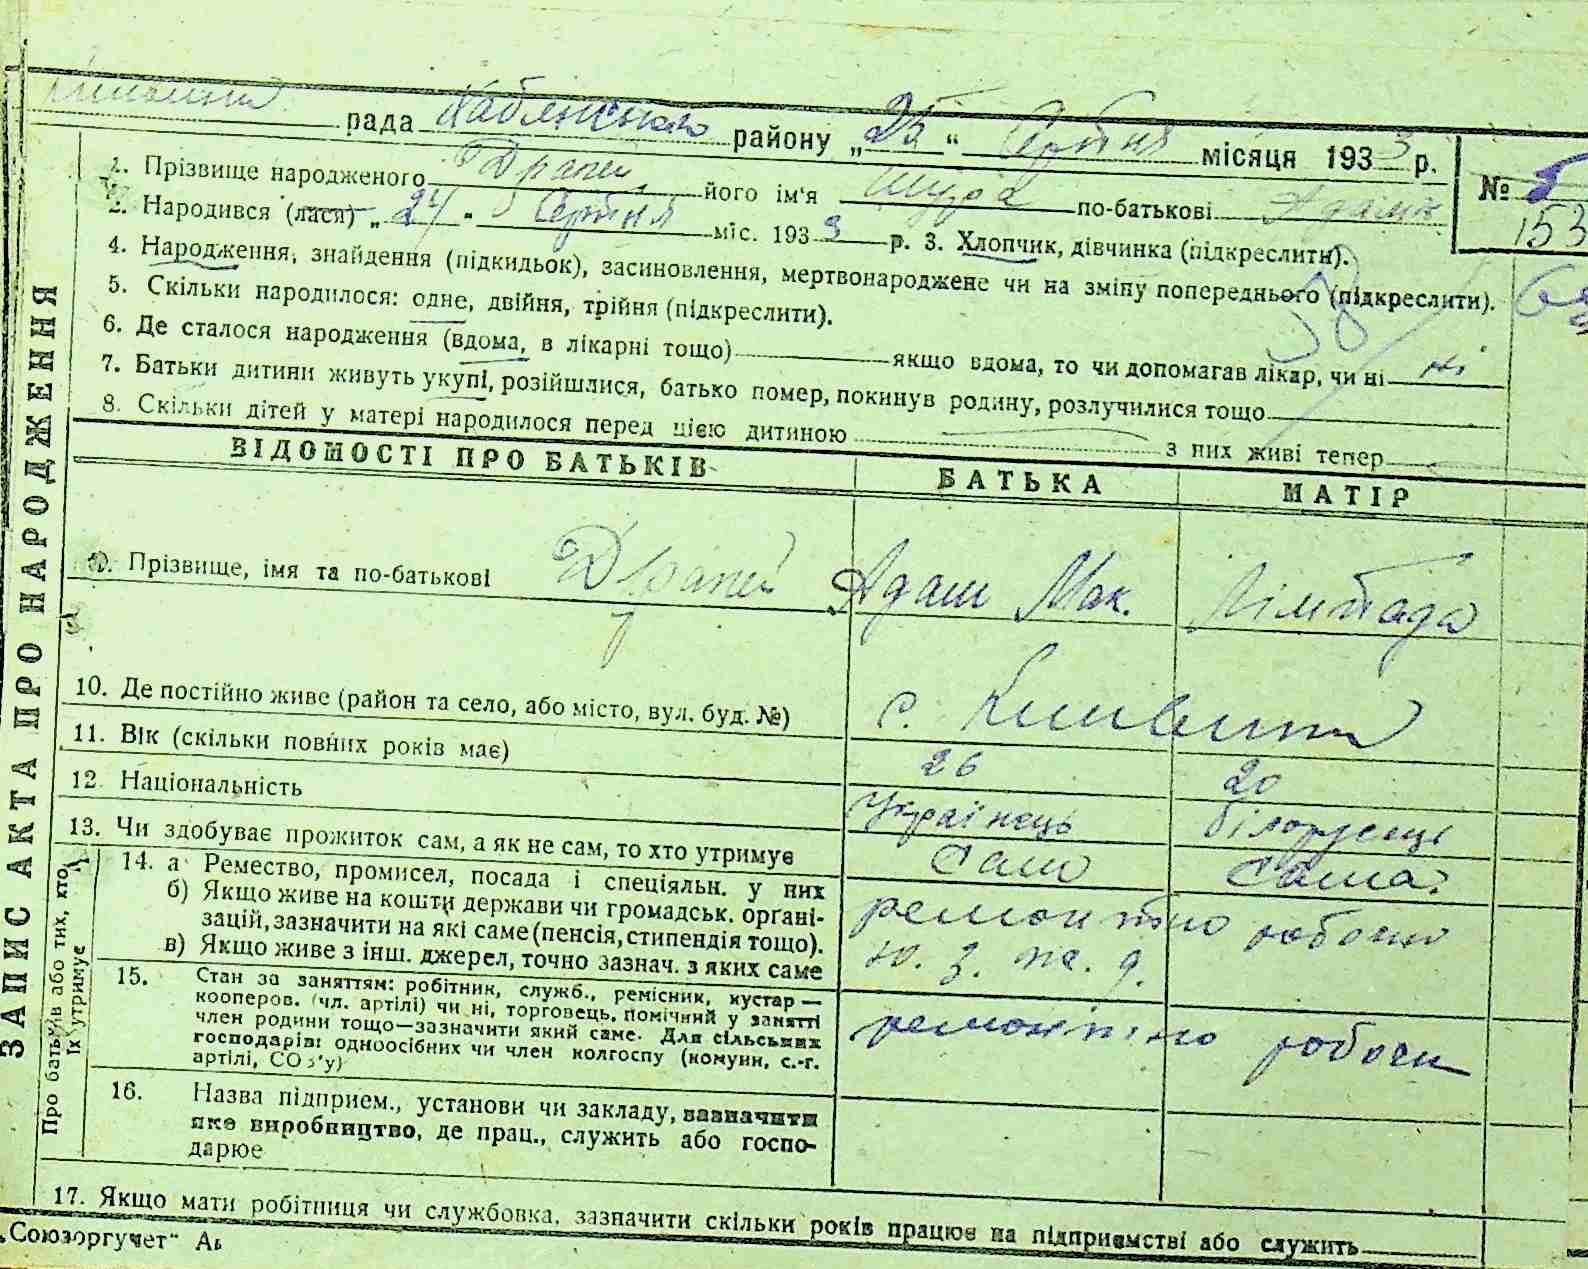 рада Хабенського району „25“ Серпня місяця 1933 р.
№ 5
153
1. Прізвище народженого Драпей його ім'я Шура по-батькові Адамов
2. Народився (лася) „24“ Серпня міс. 1933 р. 3. Хлопчик, дівчинка (підкреслити).
4. Народження, знайдення (підкидьок), засиновлення, мертвонароджене чи на зміну попереднього (підкреслити).
5. Скільки народилося: одне, двійня, трійня (підкреслити).
6. Де сталося народження (вдома, в лікарні тощо) якщо вдома, то чи допомагав лікар, чи ні ні
7. Батьки дитини живуть укупі, розійшлися, батько помер, покинув родину, розлучилися тощо
8. Скільки дітей у матері народилося перед цією дитиною з них живі тепер
ЗАПИС АКТА ПРО НАРОДЖЕННЯ
ВІДОМОСТІ ПРО БАТЬКІВ БАТЬКА МАТІР
9. Прізвище, імя та по-батькові Драпей Адам Мак.
10. Де постійно живе (район та село, або місто, вул. буд. №) с.
11. Вік (скільки повних років має) 26 20
12. Національність Українець білорусець
13. Чи здобуває прожиток сам, а як не сам, то хто утримує Само Сама
Про батьків або тих, хто їх утримує
14. а Ремество, промисел, посада і спеціяльн. у них ремонтно робочи
б) Якщо живе на кошти держави чи громадськ. органі-
зацій, зазначити на які саме (пенсія, стипендія тощо). ю. з. ж. д.
в) Якщо живе з інш. джерел, точно зазнач. з яких саме
15. Стан за заняттям: робітник, служб., ремісник, кустар —
кооперов. (чл. артілі) чи ні, торговець, помічний у занятті
член родини тощо—зазначити який саме. Для сільських ремонтно робочи
господарів: одноосібних чи член колгоспу (комуни, с.-г.
артілі, СОЗ'у)
16. Назва підприєм., установи чи закладу, зазначити
яке виробництво, де прац., служить або госпо-
дарює
17. Якщо мати робітниця чи службовка, зазначити скільки років працює на підприємстві або служить
„Союзоргучет“